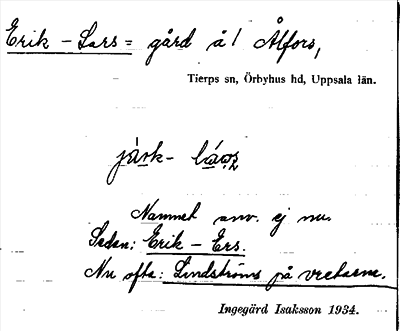 Erik-Lars= gård å/ Ålfors,
Tierps sn, Örbyhus hd, Uppsala län.
Namnet anv. ej nu.
Sedan: Erik-Ers.
Nu ofta: Lindströms på vretarne.
Ingegärd Isaksson 1934.